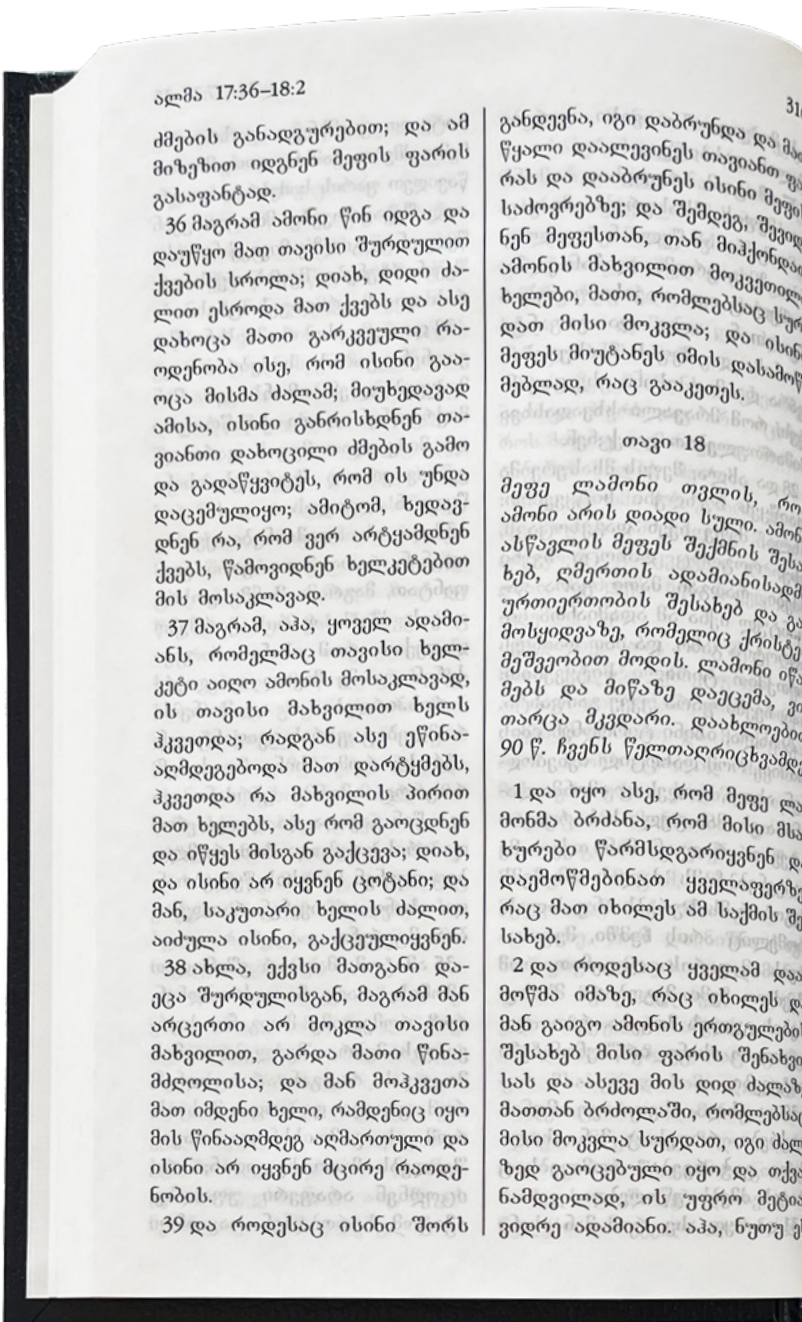 ალმა 17:36–18:2
ძმების განადგურებით; და ამ
მიზეზით იდგნენ მეფის ფარის
გასაფანტად.
36 მაგრამ ამონი წინ იდგა და
დაუწყო მათ თავისი შურდულით
ქვების სროლა; დიახ, დიდი ძა-
ლით ესროდა მათ ქვებს და ასე
დახოცა მათი გარკვეული რა-
ოდენობა ისე, რომ ისინი გაა-
ოცა მისმა ძალამ; მიუხედავად
ამისა, ისინი განრისხდნენ თა-
ვიანთი დახოცილი ძმების გამო
და გადაწყვიტეს, რომ ის უნდა
დაცემულიყო; ამიტომ, ხედავ-
დნენ რა, რომ ვერ არტყამდნენ
ქვებს, წამოვიდნენ ხელკეტებით
მის მოსაკლავად.
37 მაგრამ, აჰა, ყოველ ადამი-
ანს, რომელმაც თავისი ხელ-
კეტი აიღო ამონის მოსაკლავად,
ის თავისი მახვილით ხელს
ჰკვეთდა; რადგან ასე ეწინა-
აღმდეგებოდა მათ დარტყმებს,
ჰკვეთდა რა მახვილის პირით
მათ ხელებს, ასე რომ გაოცდნენ
და იწყეს მისგან გაქცევა; დიახ,
და ისინი არ იყვნენ ცოტანი; და
მან, საკუთარი ხელის ძალით,
აიძულა ისინი, გაქცეულიყვნენ.
38 ახლა, ექვსი მათგანი და-
ეცა შურდულისგან, მაგრამ მან
არცერთი არ მოკლა თავისი
მახვილით, გარდა მათი წინა-
მძღოლისა; და მან მოჰკვეთა
მათ იმდენი ხელი, რამდენიც იყო
მის წინააღმდეგ აღმართული და
ისინი არ იყვნენ მცირე რაოდე-
ნობის.
39 და როდესაც ისინი შორს
განდევნა, იგი დაბრუნდა და
წყალი დაალევინეს თავიანთ
რას და დააბრუნეს ისინი
საძოვრებზე; და შემდეგ,
ნენ მეფესთან, თან
ამონის მახვილით
ხელები, მათი, რომლებსაც
დათ მისი მოკვლა; და
მეფეს მიუტანეს იმის
მებლად, რაც გააკეთეს.
თავი 18
მეფე ლამონი თვლის,
ამონი არის დიადი სული.
ასწავლის მეფეს შექმნის
ხებ, ღმერთის
ურთიერთობის შესახებ და
მოსყიდვაზე, რომელიც
მეშვეობით მოდის. ლამონი
მებს და მიწაზე დაეცემა,
თარცა მკვდარი.
90 წ. ჩვენს
1 და იყო ასე, რომ მეფე
მონმა ბრძანა, რომ მისი
ხურები წარმსდგარიყვნენ
დაემოწმებინათ
რაც მათ იხილეს ამ საქმის
სახებ.
2 და როდესაც ყველამ
მოწმა იმაზე, რაც იხილეს
მან გაიგო ამონის
შესახებ მისი ფარის
სას და ასევე მის დიდ
მათთან ბრძოლაში,
მისი მოკვლა სურდათ, იგი
ზედ გაოცებული იყო და
ნამდვილად, ის უფრო
ვიდრე ადამიანი. აჰა, ნუთუ